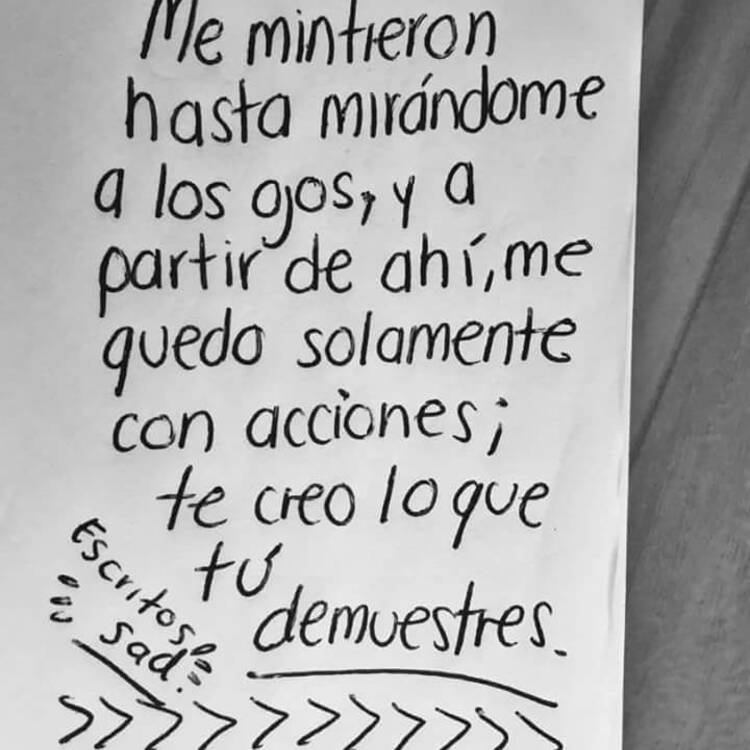 Me mintieron
hasta mirándome
a los ojos, y a
partir de ahí, me
quedo solamente
con acciones;
te creo lo que
tú
demuestres.
Escritos
sad.